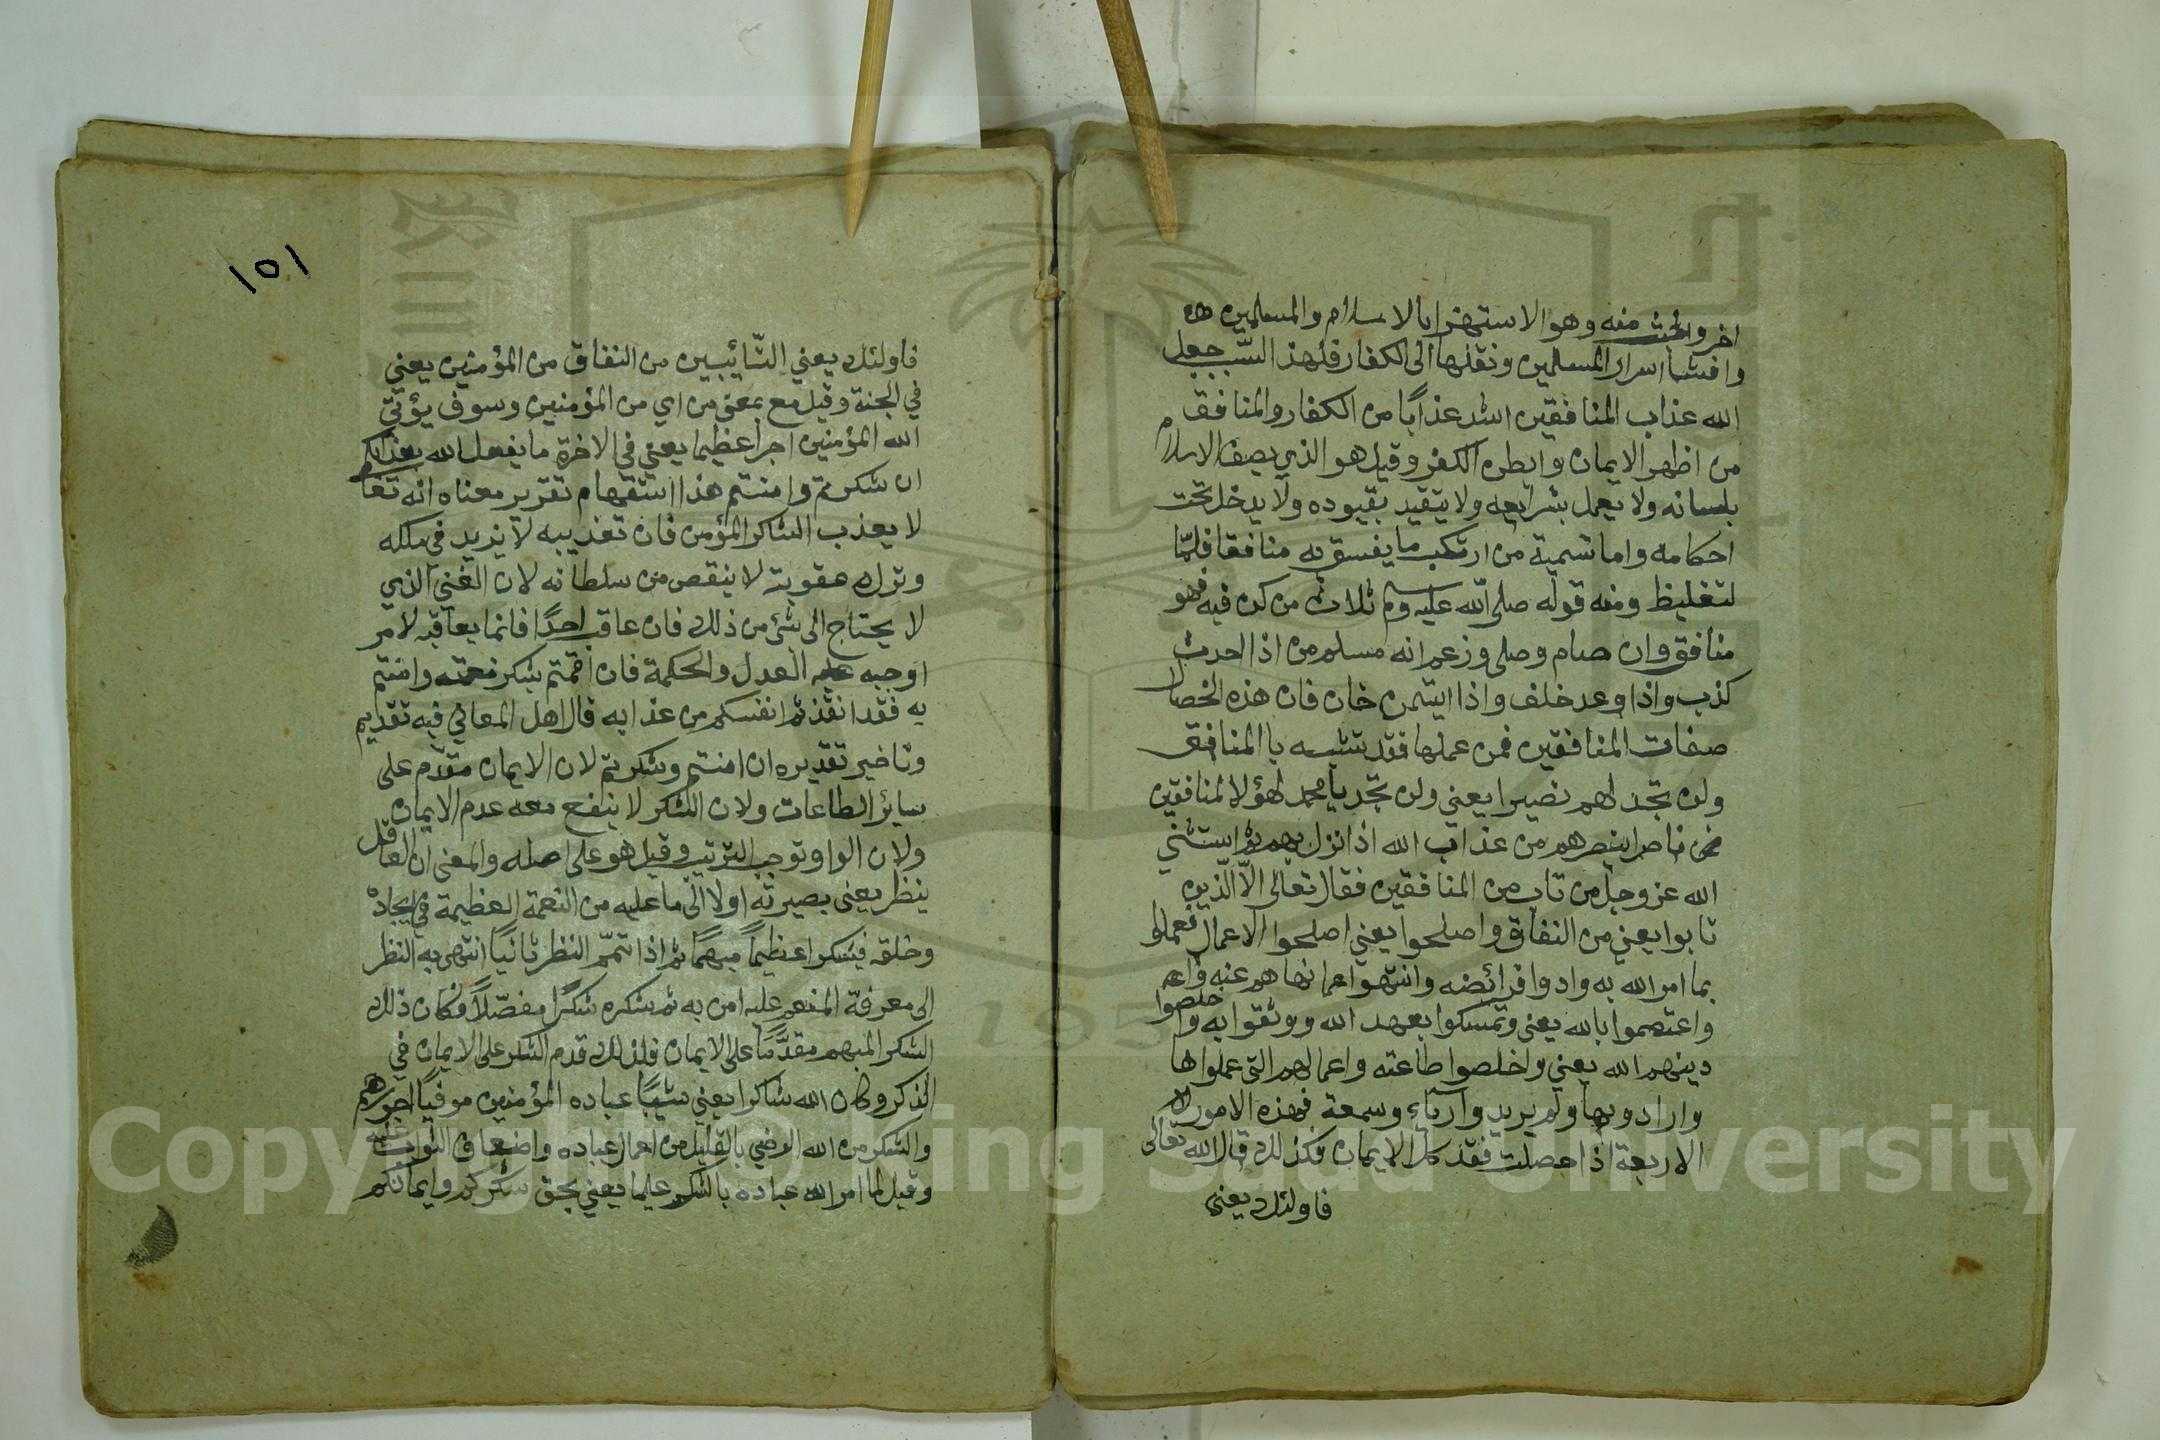 اخر واخبث منه وهو الاستهزا بالاسلام والمسلمين
وافشا اسرار المسلمين ونقلها الى الكفار فلهذ السّبب جعل
الله عذاب المنافقين اشد عذابًا من الكفار والمنافق
من اظهر الايمان وابطن الكفر وقيل هو الذي يصف الاسلام
بلسانه ولا يعمل بشرايعه ولا يتقيد بقيوده ولا يدخل تحت
احكامه واما تسمية من ارتكب ما يفسق به منافقا فلمّا
لتغليظ ومنه قوله صلى الله عليه وسلم ثلاث من كن فيه فهو
منافق وان صام وصلى وزعم انه مسلم من اذا حدث
كذب واذا وعد خلف واذا ايتمن خان فان هذه الخصال
صفات المنافقين فمن عملها فقد تشبه با المنافق
ولن تجد لهم نصيرا يعني ولن تجد يا محمد لهؤلا لمنافقين
من ناصر ينصرهم من عذاب الله اذا نزل بهم ثم استثني
الله عز وجل من تاب من المنافقين فقال تعالى الاّ الّذين
تابوا يعني من النفاق واصلحوا يعني اصلحوا الاعمال فعملوا
بما امر الله به وادوا فرائضه وانتهوا عما نهاهم عنه
واعتصموا بالله يعني وتمسكوا بعهد الله ووثقوا به واخلصوا
دينهم الله يعني واخلصوا طاعته واعمالهم التي عملوا ها
وارادوا بها ولم يريدوا رياء وسمعة فهذه الامور
الاربعة اذا حصلت فقد كمل الايمان فكذلك قال الله تعالى
فاولئك يعني
١٥١
فاولئك يعني التّائيبين من النفاق من المؤمنين يعني
في الجنة وقيل مع بمعنى من اي من المؤمنين وسوف يؤتي
الله المؤمنين اجرا عظيما يعني في الاخرة ما يفعل الله بعذابكم
ان شكرتم وامنتم هذا استفهام تقرير معناه انه تعا
لا يعذب الشاكر المؤمن فان تعذيبه لا يزيد في ملكه
وترك عقوبته لا ينقص من سلطانه لان الغني الذي
لا يحتاج الى شئ من ذلك فان عاقب احدًا فانما يعاقبه لامر
اوجبه عليه العدل والحكمة فان اقمتم بشكر نعمته وامنتم
به فقد انقذتم انفسكم من عذابه قال اهل المعاني فيه تقديم
وتاخير تقديره ان امنتم وشكرتم لان الايمان مقدّم على
سائر الطاعات ولان الشكر لا ينفع معه عدم الايمان
ولان الواو توجب الترتيب وقيل هو على اصله والمعنى ان العاقل
ينظر يعنى بصيرته اولا الى ما عليه من النعمة العظيمة في ايجاده
وخلقه فيشكر عظيماً مبهماً ثم اذا تمّم النظر ثانيًا انتهى به النظر
الى معرفة المنعم عليه امن به ثم شكره شكرًا مفصّلاً فكان ذلك
الشكر المبهم مقدّمًا على الايمان فلذلك قدم الشكر على الايمان في
الذكر وكان الله شاكرا يعني مثيبًا عباده المؤمنين موفيًا اجورهم
والشكر من الله الرضي بالقليل من اعمال عباده واضعاف الثواب عليه
وقيل لما امر الله عباده بالشكر عليما يعني بحق شكركم وايمانكم
Copyright © King Saud University